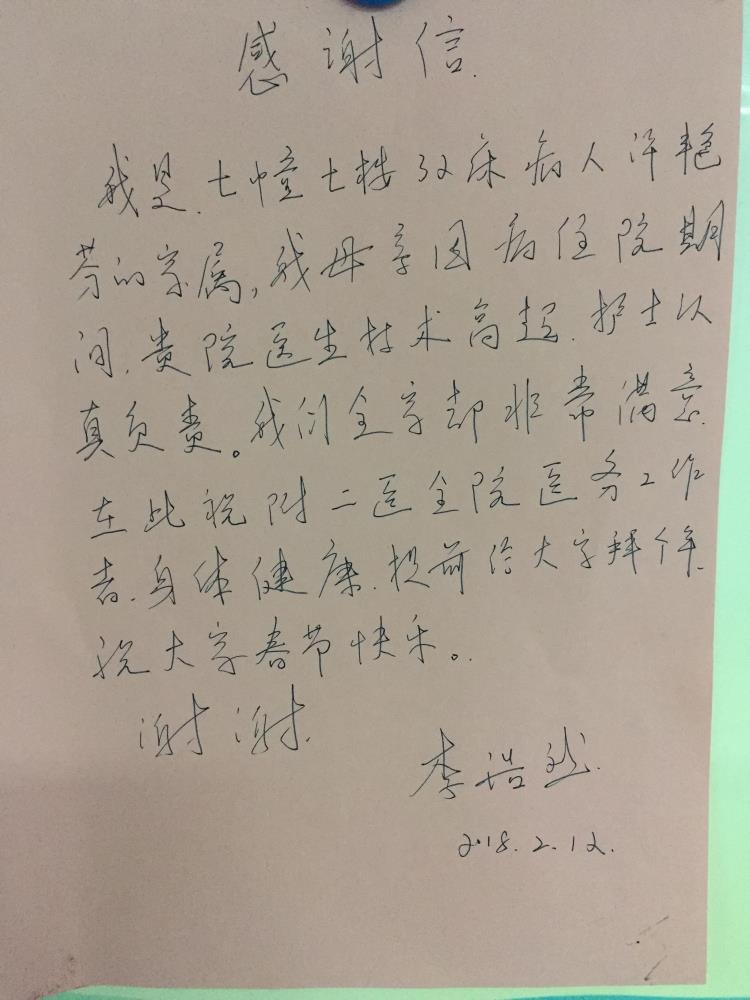 感谢信
我是.七幢七楼32床病人许艳
芬的家属,我母亲因病住院期
间.贵院医生技术高超.护士认
真负责。我们全家都非常满意.
在此祝附二医全院医务工作
者.身体健康.提前给大家拜个年.
祝大家春节快乐。
谢谢.
李浩然.
2018.2.12.